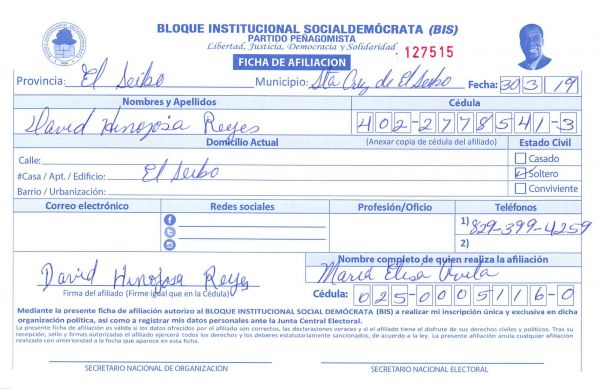 BLOQUE INSTITUCIONAL SOCIALDEMÓCRATA (BIS)
PARTIDO PEÑAGOMISTA
Libertad, Justicia, Democracia y Solidaridad
127515
FICHA DE AFILIACION
Provincia: El Seibo Municipio: Sta Cruz de El Seibo Fecha: 30 3 19
Nombres y Apellidos Cédula
David Hinojosa Reyes 402-2778541-3
Domicilio Actual (Anexar copia de cédula del afiliado) Estado Civil
Calle: Casado
#Casa / Apt. / Edificio: El Seibo Soltero
Barrio / Urbanización: Conviviente
Correo electrónico Redes sociales Profesión/Oficio Teléfonos
1) 829-399-4259
2)
Nombre completo de quien realiza la afiliación
David Hinojosa Reyes María Elisa Avila
Firma del afiliado (Firme igual que en la Cédula) Cédula: 025-0005116-0
Mediante la presente ficha de afiliación autorizo al BLOQUE INSTITUCIONAL SOCIAL DEMÓCRATA (BIS) a realizar mi inscripción única y exclusiva en dicha
organización política, así como a registrar mis datos personales ante la Junta Central Electoral.
La presente ficha de afiliación es válida si los datos ofrecidos por el afiliado son correctos, las declaraciones veraces y si el afiliado tiene el disfrute de sus derechos civiles y políticos. Tras su
recepción, sello y firmas autorizadas el afiliado ejercerá todos los derechos y los deberes estatutariamente sancionados, de acuerdo a la ley. La presente afiliación anula cualquier afiliación
realizada con anterioridad a la fecha que aparece en esta ficha.
SECRETARIO NACIONAL DE ORGANIZACIÓN SECRETARIO NACIONAL ELECTORAL